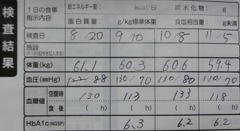 検査結果
1日の食事
指示内容
総エネルギー量: kcal/日 炭水化物: g
蛋白質量: g/kg標準体重 食塩相当量: g未満
検査日 8/20 9/10 10/8 11/5
施設
体重(kg) 61.1 60.3 60.6 59.4
血圧(mmHg) 122/88 130/70 130/80 110/70
血糖値 空腹時 130 113 133 118
食後 ( h) ( h) ( h) ( h)
HbA1c(NGSP) 6.3 6.2 6.2